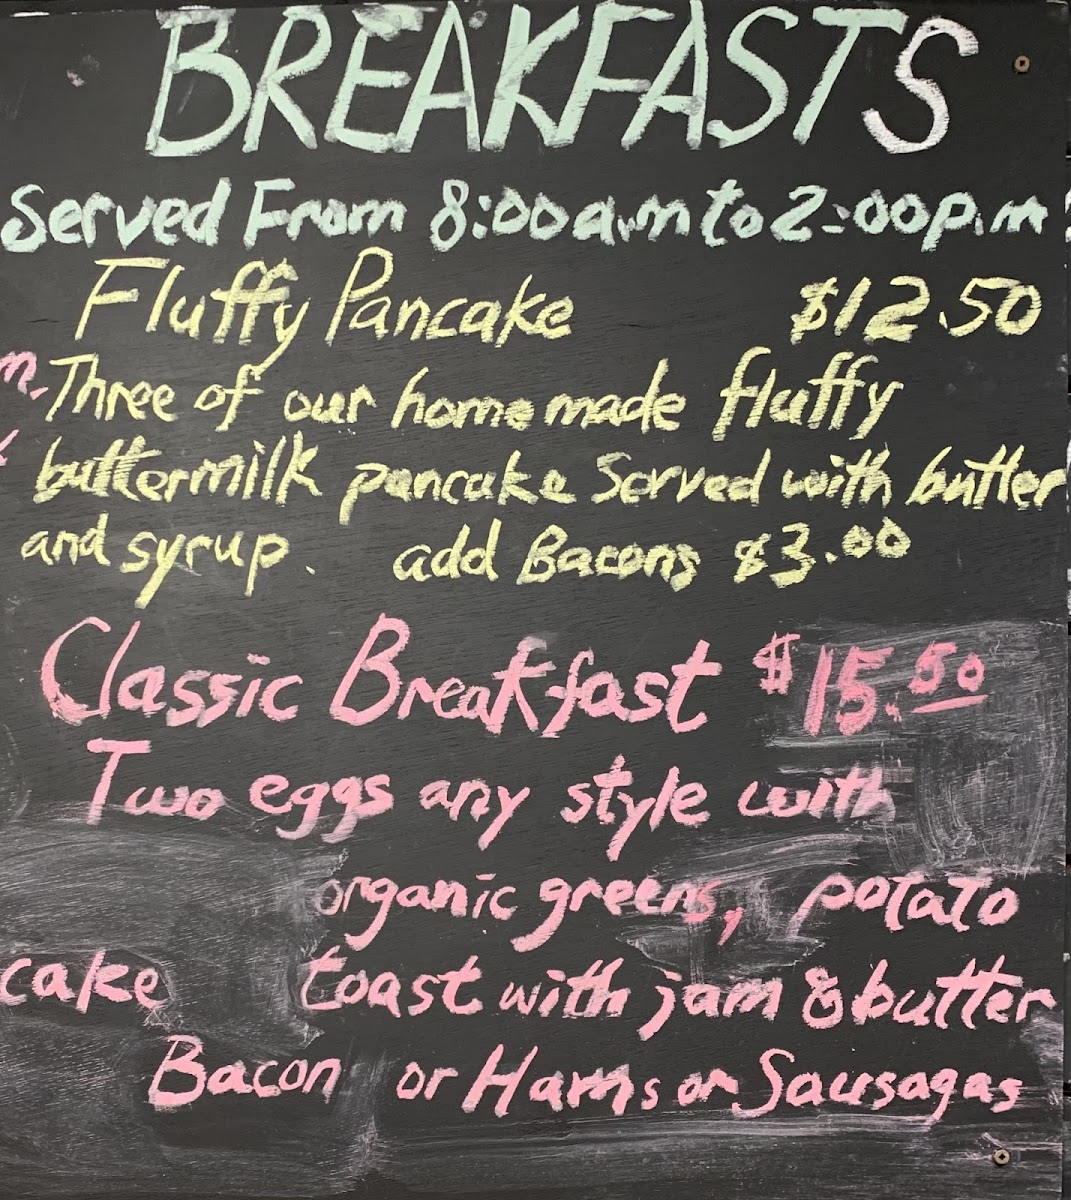 BREAKFASTS
Served From 8:00a.m to 2:00p.m
Fluffy Pancake $12.50
Three of our homemade fluffy
buttermilk pancake Served with butter
and syrup. add Bacons $3.00
Classic Breakfast $15.50
Two eggs any style with
organic greens, potato
cake toast with jam & butter
Bacon or Hams or Sausagas